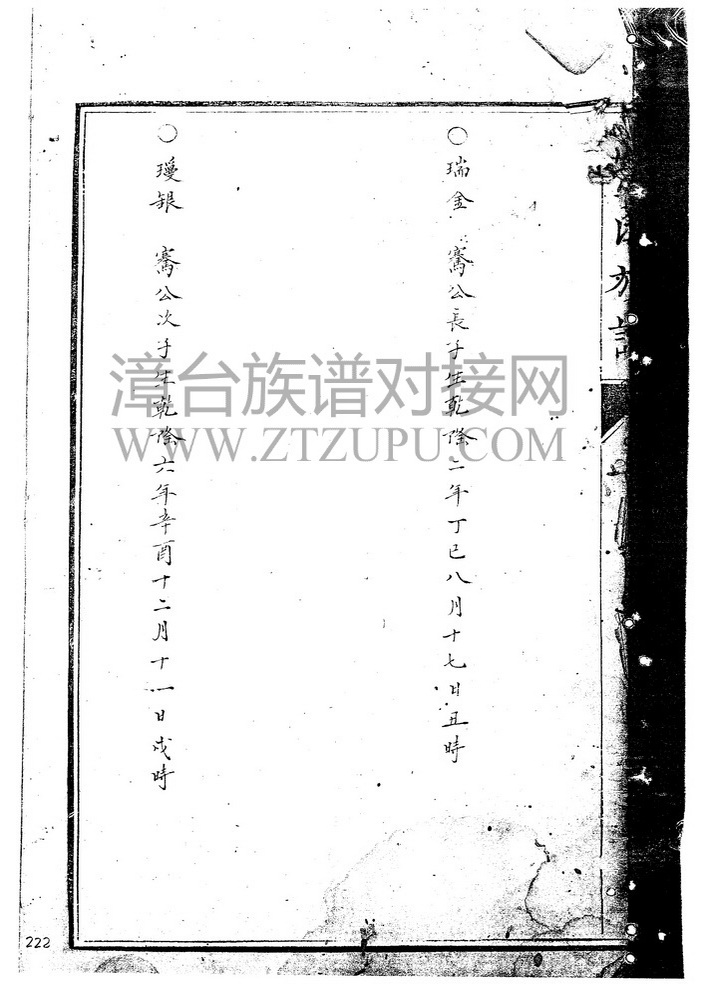 族譜
○瑞金 騫公長子生乾隆二年丁巳八月十七日丑時
○瓊銀 騫公次子生乾隆六年辛酉十二月十一日戌時
漳台族谱对接网
WWW.ZTZUPU.COM
222